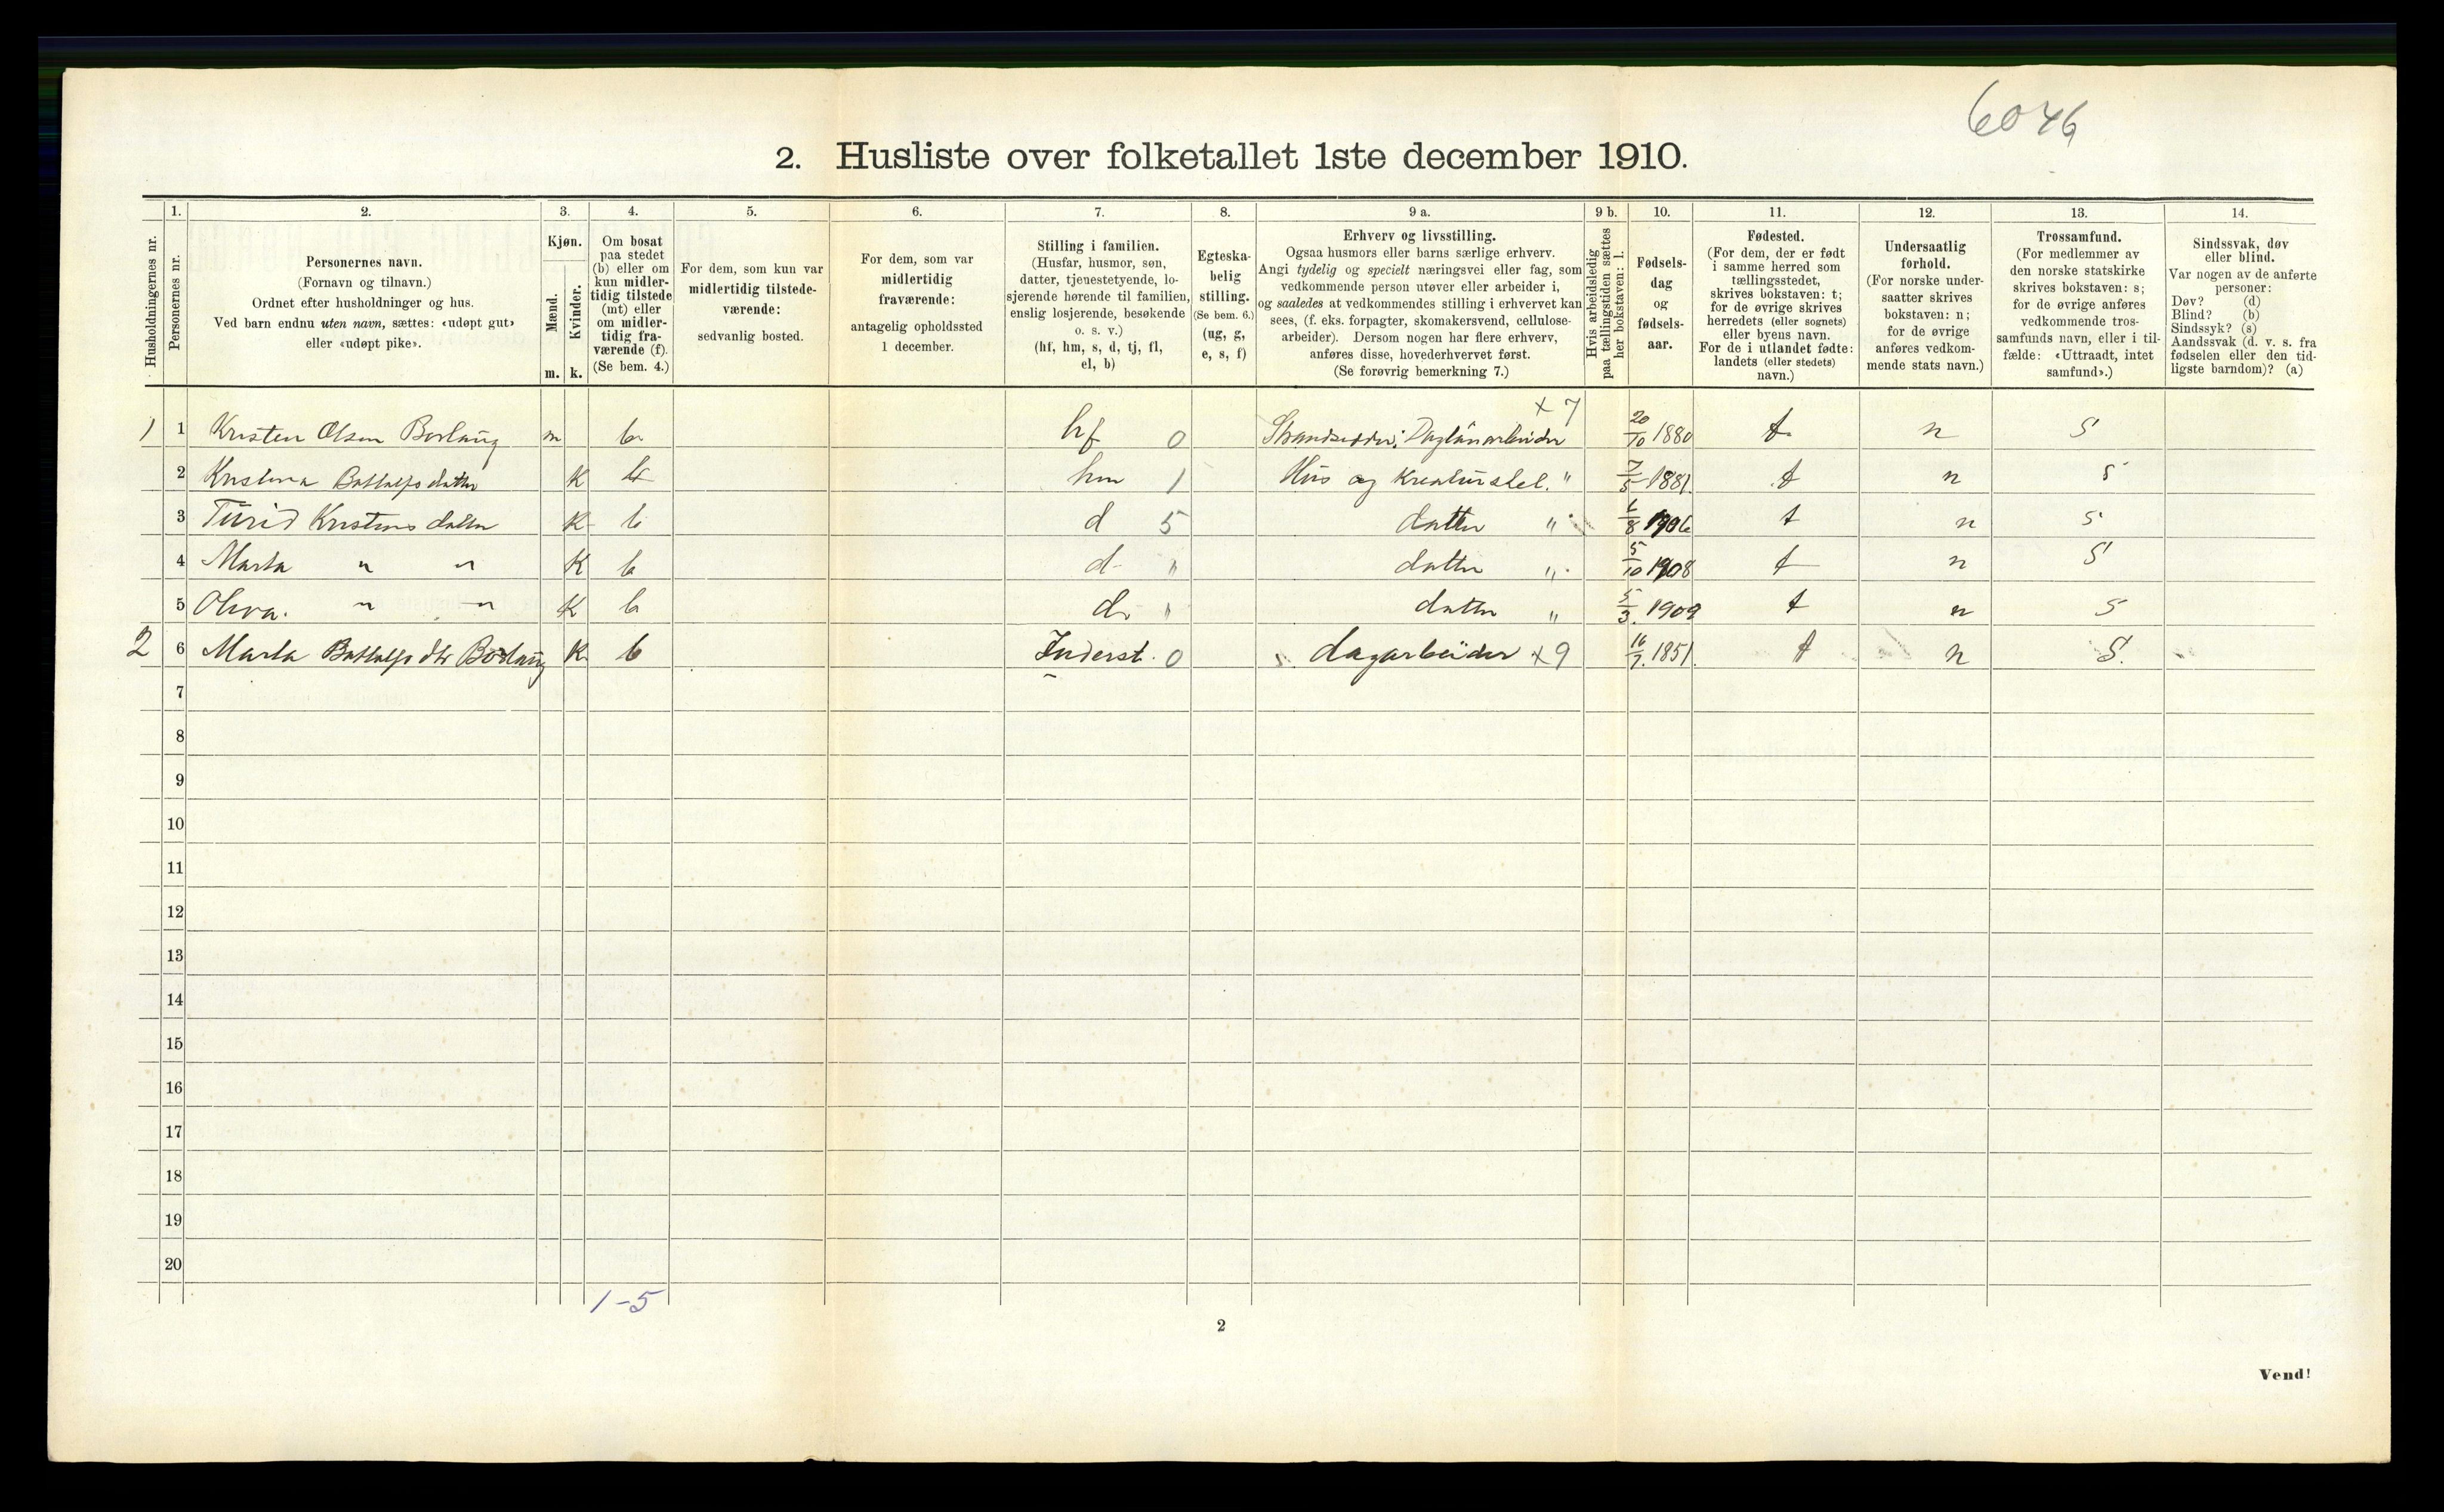 6046
2. Husliste over folketallet 1ste december 1910.
Husholdningernes nr.
1.
Personernes nr.
2.
Personernes navn.
(Fornavn og tilnavn.)
Ordnet efter husholdninger og hus.
Ved barn endnu uten navn, sættes: «udøpt gut»
eller «udøpt pike».
3.
Kjøn.
Mænd.
Kvinder.
m. k.
4.
Om bosat
paa stedet
(b) eller om
kun midler-
tidig tilstede
(mt) eller
om midler-
tidig fra-
værende (f).
(Se bem. 4.)
5.
For dem, som kun var
midlertidig tilstede-
værende:
sedvanlig bosted.
6.
For dem, som var
midlertidig
fraværende:
antagelig opholdssted
1 december.
7.
Stilling i familien.
(Husfar, husmor, søn,
datter, tjenestetyende, lo-
sjerende hørende til familien,
enslig losjerende, besøkende
o. s. v.)
(hf, hm, s, d, tj, fl,
el, b)
8.
Egteska-
belig
stilling.
(Se bem. 6.)
(ug, g,
e, s, f)
9 a.
Erhverv og livsstilling.
Ogsaa husmors eller barns særlige erhverv.
Angi tydelig og specielt næringsvei eller fag, som
vedkommende person utøver eller arbeider i,
og saaledes at vedkommendes stilling i erhvervet kan
sees, (f. eks. forpagter, skomakersvend, cellulose-
arbeider). Dersom nogen har flere erhverv,
anføres disse, hovederhvervet først.
(Se forøvrig bemerkning 7.)
9 b.
Hvis arbeidsledig
paa tællingstiden sættes
her bokstaven: l.
10.
Fødsels-
dag
og
fødsels-
aar.
11.
Fødested.
(For dem, der er født
i samme herred som
tællingsstedet,
skrives bokstaven: t;
for de øvrige skrives
herredets (eller sognets)
eller byens navn.
For de i utlandet fødte:
landets (eller stedets)
navn.)
12.
Undersaatlig
forhold.
(For norske under-
saatter skrives
bokstaven: n;
for de øvrige
anføres vedkom-
mende stats navn.)
13.
Trossamfund.
(For medlemmer av
den norske statskirke
skrives bokstaven: s;
for de øvrige anføres
vedkommende tros-
samfunds navn, eller i til-
fælde: «Uttraadt, intet
samfund».)
14.
Sindssvak, døv
eller blind.
Var nogen av de anførte
personer:
Døv? (d)
Blind? (b)
Sindssyk? (s)
Aandssvak (d. v. s. fra
fødselen eller den tid-
ligste barndom)? (a)
x 7
1 1 Kristen Olsen Borlaug m b hf 0 Strandsidder; Daglönarbeider 20/10 1880 t. n S
2 Kristina Bottolfsdatter K b hm 1 Hus og Kreaturstel. " 7/5 1881. t n s
3 Turid Kristens datter K b d 5 datter " 6/8 1906 t n s
4 Marta " " K b d " datter " 5/10 1908 t n S
5 Oliva. " " K b d. " datter " 5/3. 1909 t n s
2 6 Marta Bottolfsdtr Borlaug K. b Inderst. 0 dagarbeider x9 1851. t n S.
7
8
9
10
11
12
13
14
15
16
17
18
19
20
1-5
2
Vend!